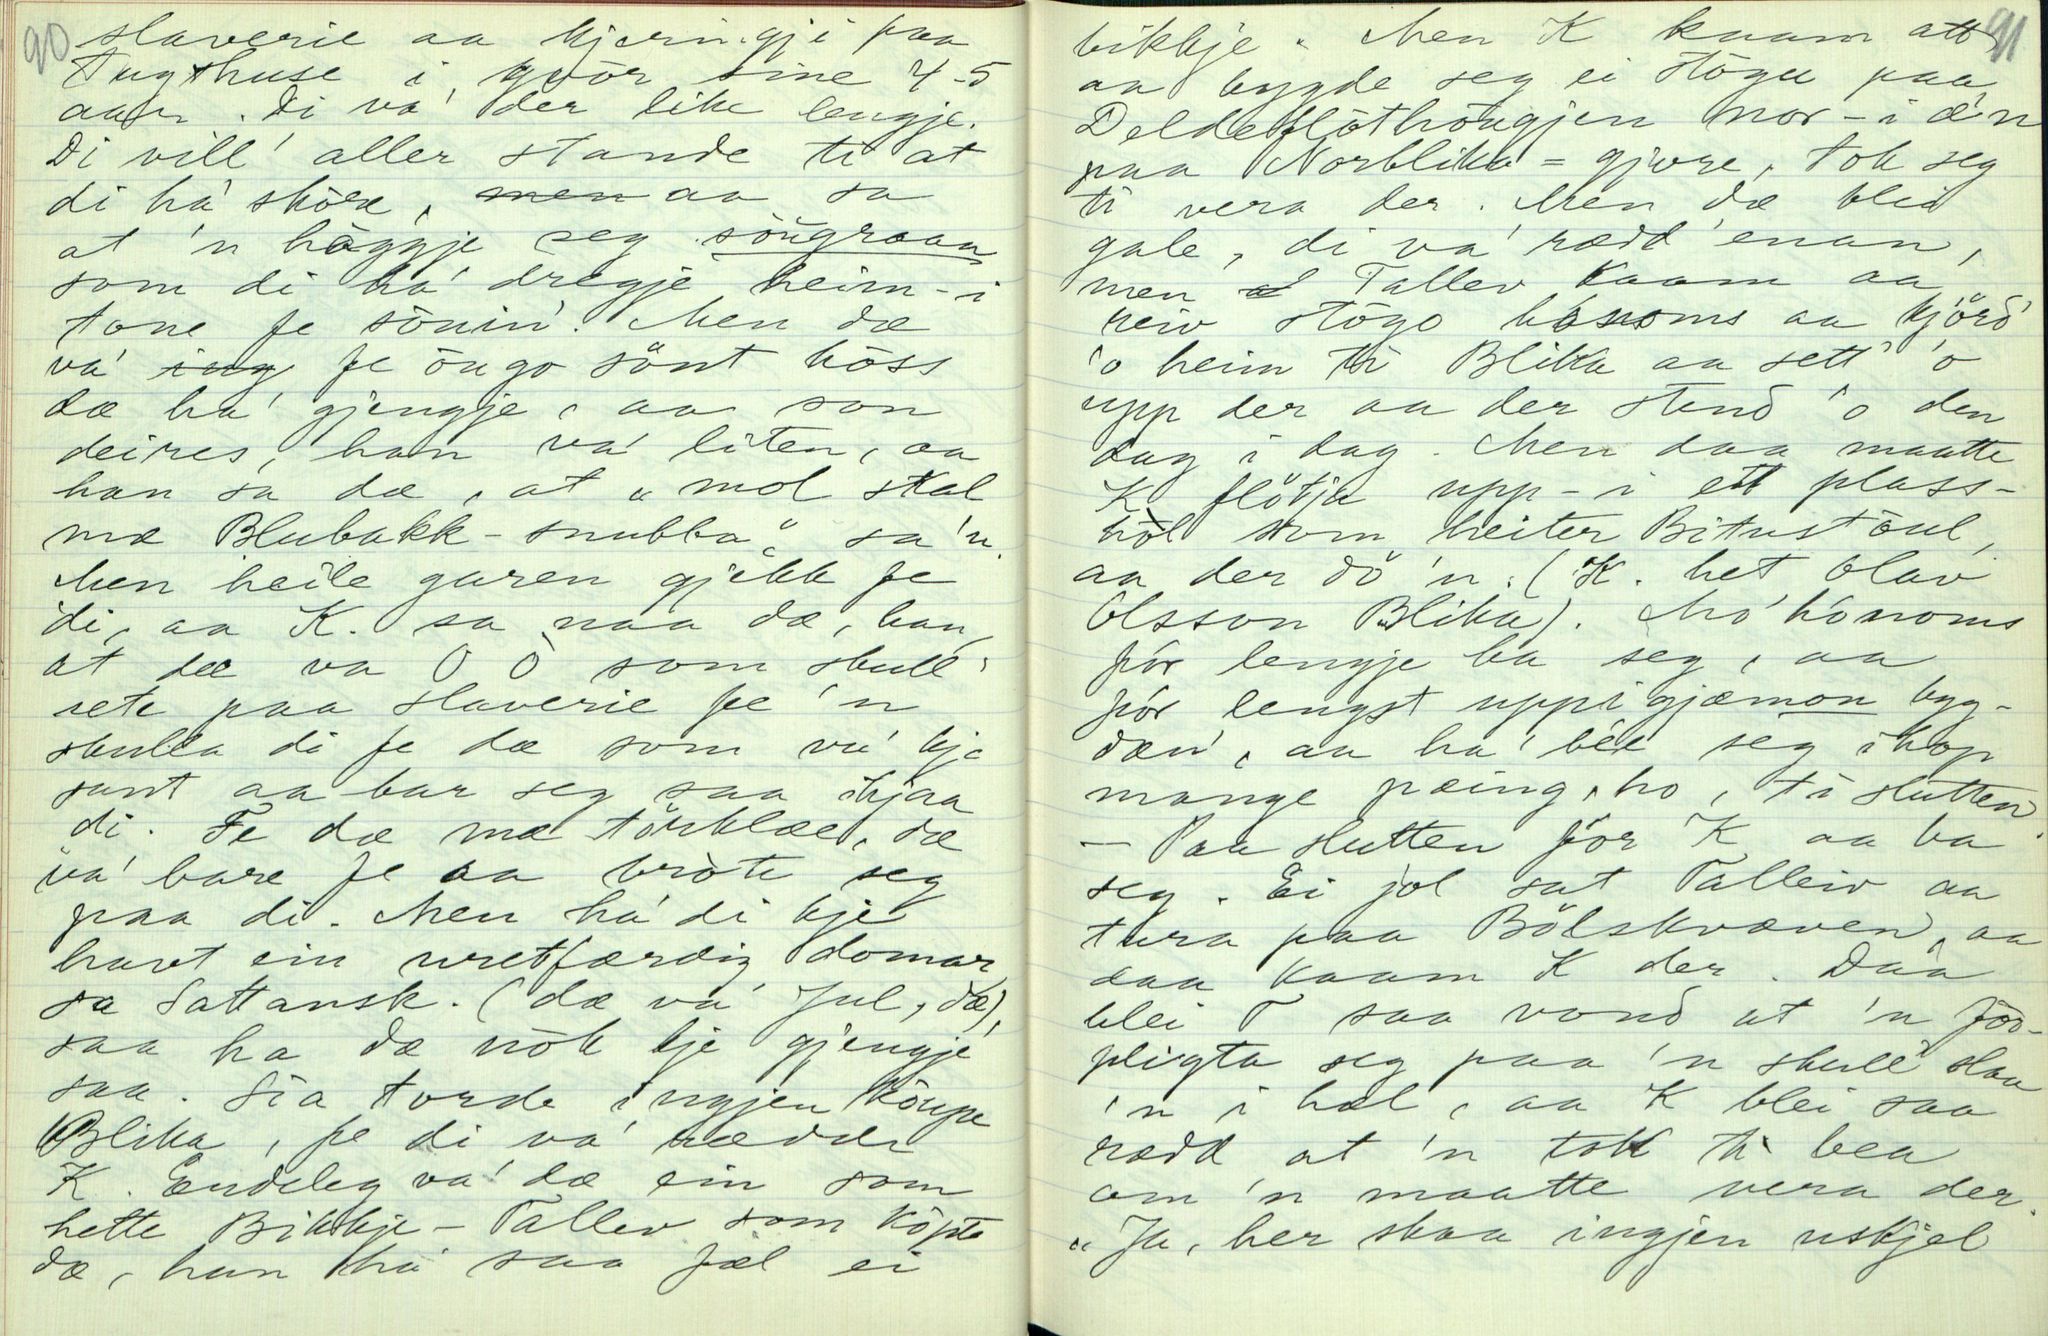 90
slaverie aa kjeringji paa
Tugthuse i, kvör sine 4-5
aar. Di va' der like lengje.
Di vill' aller stande ti at
di ha' skôre, men aa sa
at 'n höggje seg söugraan
som di ha' dregje heim-i
tone fe sönin'. Men dæ
va' ing fe öugo sönt höss
dæ ha' gjengje, aa son
deires, han va' liten, aa
han sa dæ, at "mol stal
mæ Blubakk-snubba" sa'n.
Men heile garen gjekk fe
di, aa K. sa naa dæ, han,
at dæ va O Ö som skull'
sete paa slaverie fe 'n
skulla di fe dæ som va' kje
sant aa bar seg saa ihjaa
di. Fe dæ mæ törklæe, dæ
va' bare fe aa bròte seg
paa di. Men ha' di kje
havt ein uretfærdig domar
sa Sattansk. (dæ va' Jul, dæ),
saa ha dæ nôk kje gjengje
saa. Sia torde ingjen köupe
Blika, fe di va' rædde
K. Ændeleg va' dæ ein som
hette Bikkje-Tallev som köpte
dæ, han ha' saa fæl ei
91
bikkje. Men K kaam att
aa bygde seg ei stögu paa
Deldeflöthöugjen nor-i æ'n
paa Norblika=gjore, tok seg
ti vera der. Men dæ blei
gale, di va' rædd'enan,
men Tallev kaam aa
reiv stögo honoms aa kjörd'
'o heim ti Blika aa sett' 'o
upp der aa der stend 'o den
dag i dag. Men daa maatte
K flötja upp-i ett plass-
hôl som heiter Bitustöul,
aa der dö 'n. (K. het Olav
Olsson Blika). Mo' honoms
fór lengje ba seg, aa
fór lengst uppi gjæmon byg-
dæn', aa ha' bée seg ihop
mange pæing, ho, ti slutten.
— Paa slutten fór K aa ba
seg. Ei jol sat Talleiv aa
tura paa Bölskvæven, aa
daa kaam K der. Daa
blei T saa vond at 'n för-
pligta seg paa 'n skull' slaa
'n i hæl, aa K blei saa
rædd at 'n tok ti bea
om 'n maatte vera der.
"Ja, her skaa ingjen uskjel